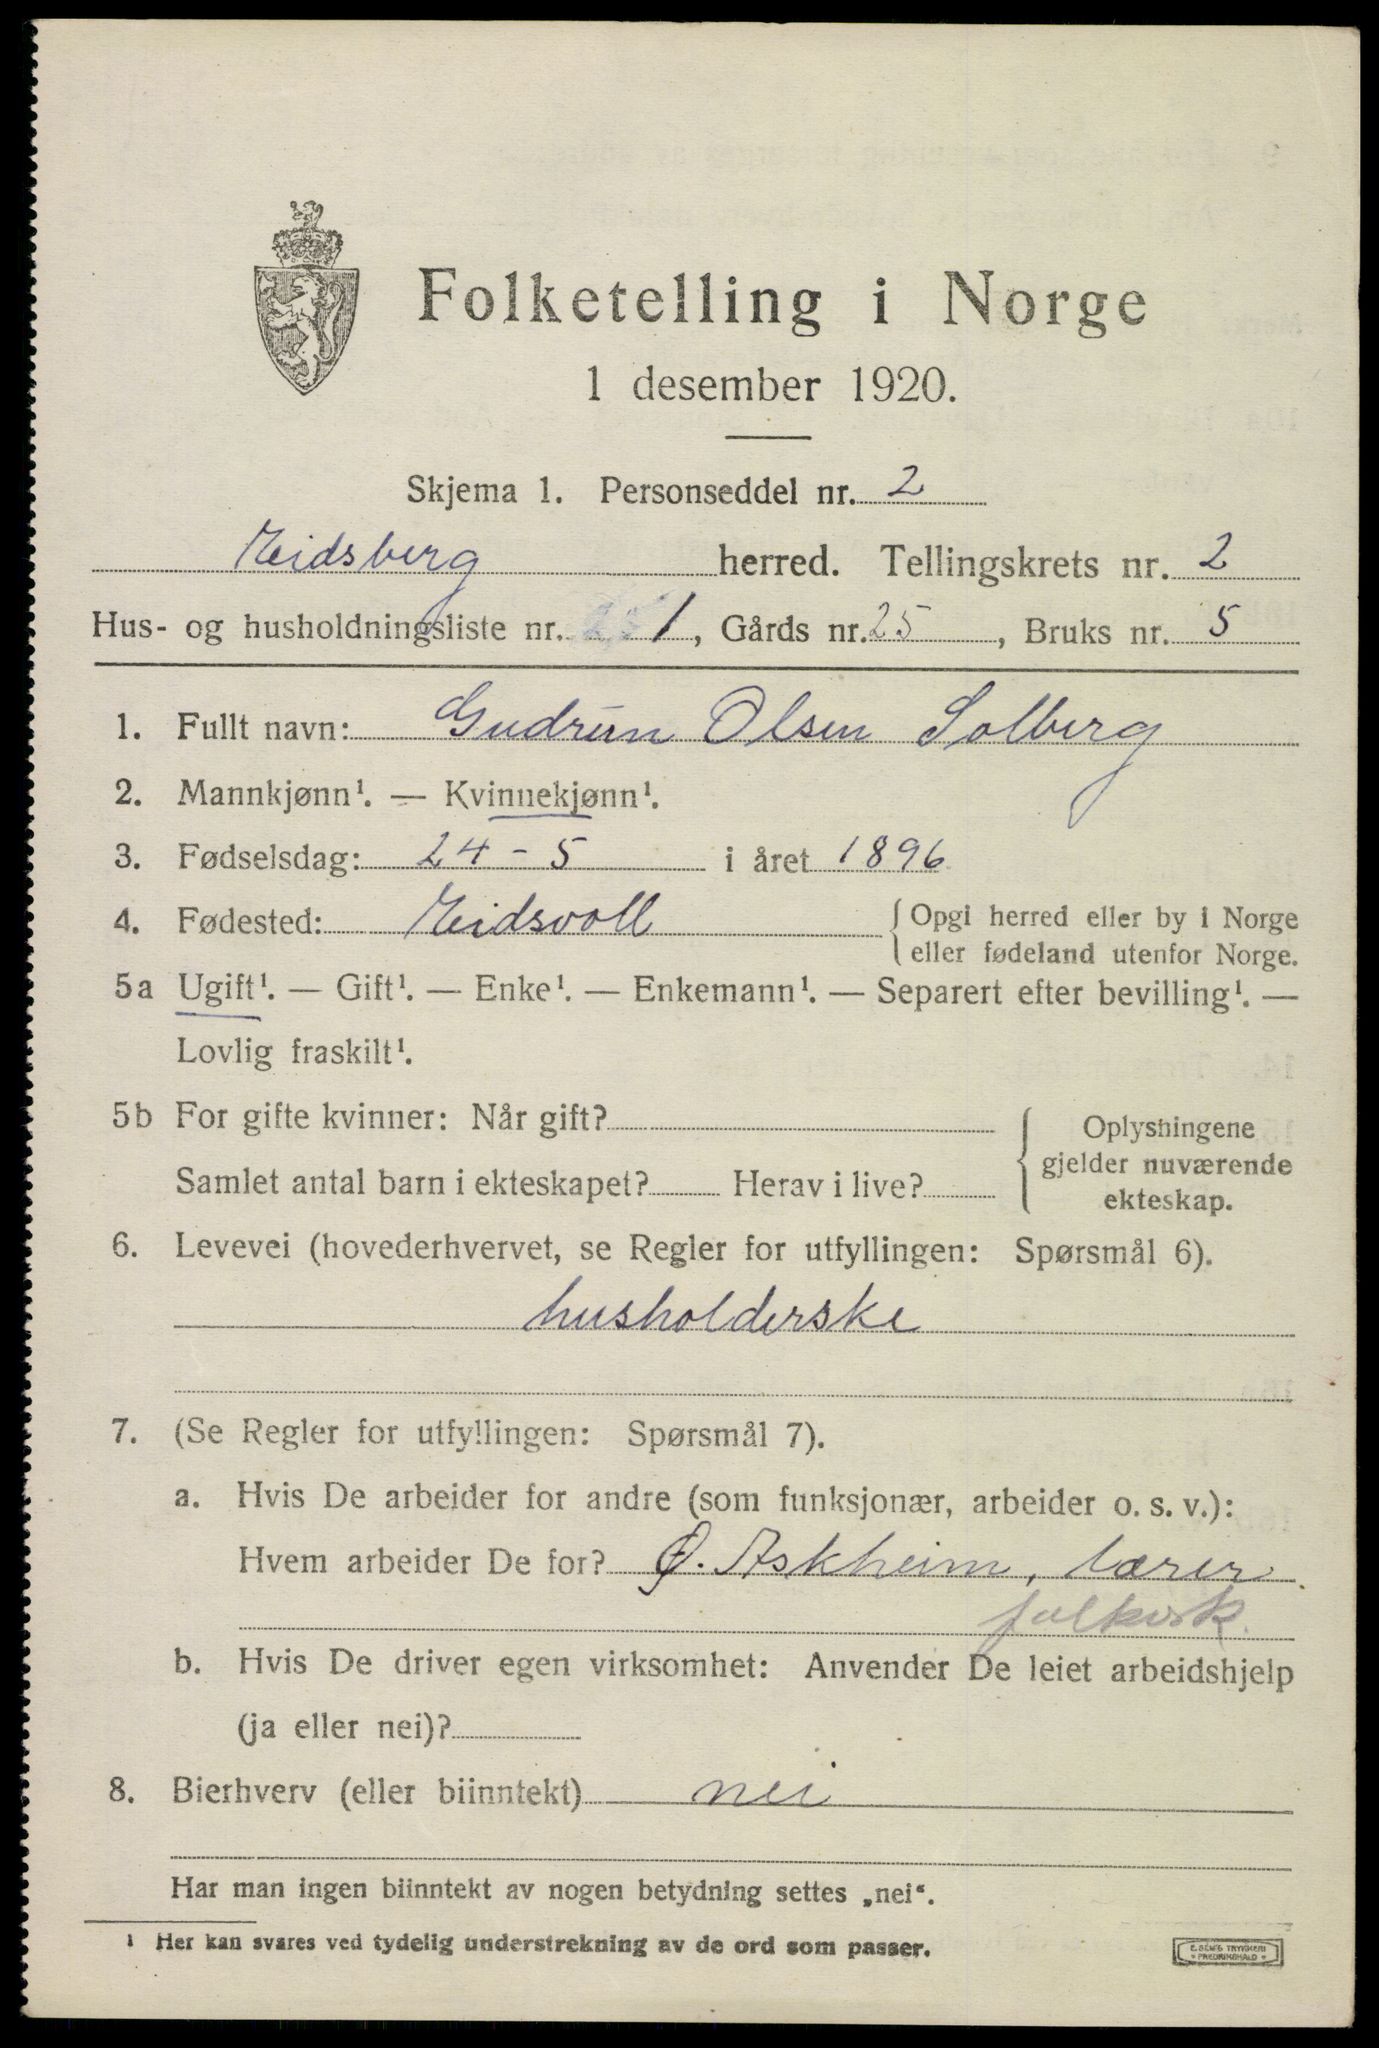 Folketelling i Norge
1 desember 1920.
Skjema 1. Personseddel nr. 2
Eidsberg herred. Tellingskrets nr. 2
Hus- og husholdningsliste nr. 1, Gårds nr. 25, Bruks nr. 5
1. Fullt navn: Gudrun Olsen Solberg
2. Mannkjønn¹. — Kvinnekjønn¹.
3. Fødselsdag: 24 - 5 i året 1896
4. Fødested: Eidsvoll { Opgi herred eller by i Norge
eller fødeland utenfor Norge.
5a Ugift¹. — Gift¹. — Enke¹. — Enkemann¹. — Separert efter bevilling¹. —
Lovlig fraskilt¹.
5b For gifte kvinner: Når gift? { Oplysningene
Samlet antal barn i ekteskapet? Herav i live? gjelder nuværende
ekteskap.
6. Levevei (hovederhvervet, se Regler for utfyllingen: Spørsmål 6).
husholderske
7. (Se Regler for utfyllingen: Spørsmål 7).
a. Hvis De arbeider for andre (som funksjonær, arbeider o. s. v.):
Hvem arbeider De for? Ø. Askheim, lærer
folkesk.
b. Hvis De driver egen virksomhet: Anvender De leiet arbeidshjelp
(ja eller nei)?
8. Bierhverv (eller biinntekt) nei
Har man ingen biinntekt av nogen betydning settes „nei“.
¹ Her kan svares ved tydelig understrekning av de ord som passer.
E. SEMS TRYKKERI
FREDRIKSHALD